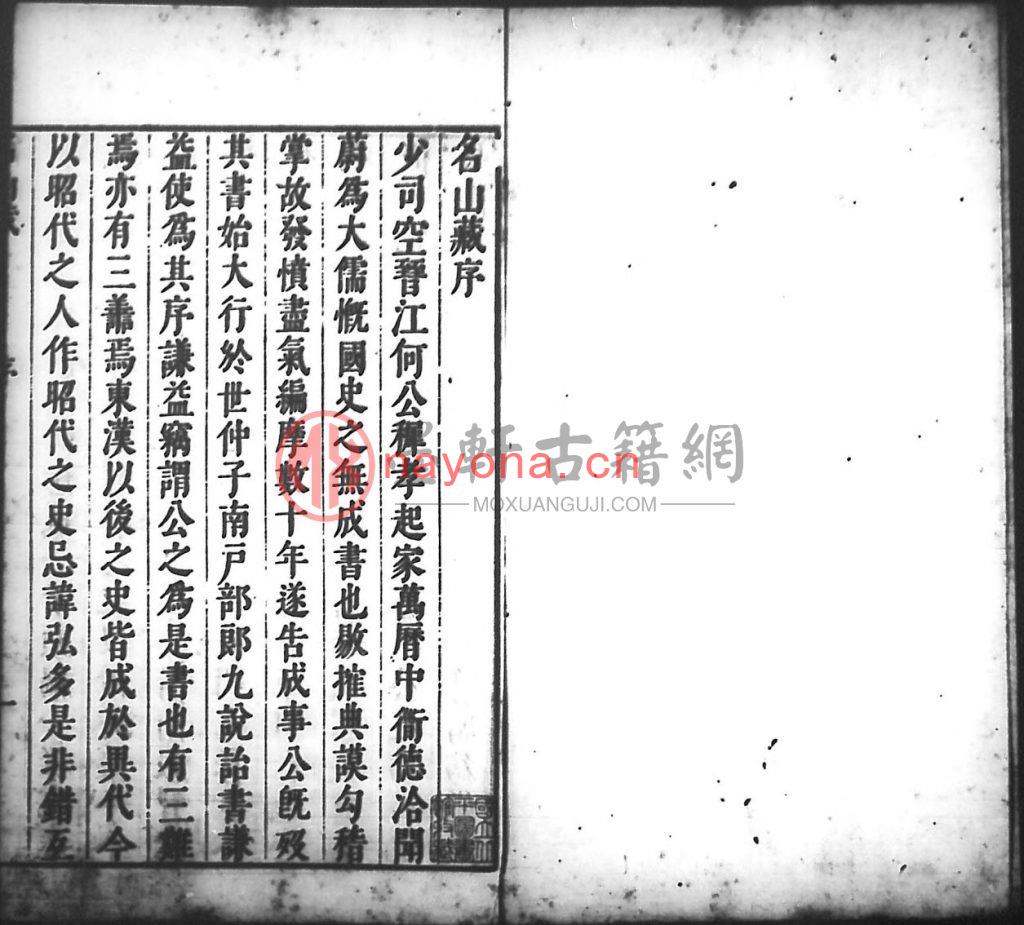 名山藏序
少司空晉江何公穉孝起家萬曆中衢德洽聞
蔚爲大儒慨國史之無成書也敭搉典謨勾稽
掌故發憤盡氣編摩數十年遂告成事公旣歿
其書始大行於世仲子南戶部郎九說詒書謙
益使爲其序謙益竊謂公之爲是書也有三難
焉亦有三善焉東漢以後之史皆成於異代今
以昭代之人作昭代之史忌諱弘多是非錯互
序
一
軒古籍網
nayona.cn
MOXUANGUJI.COM